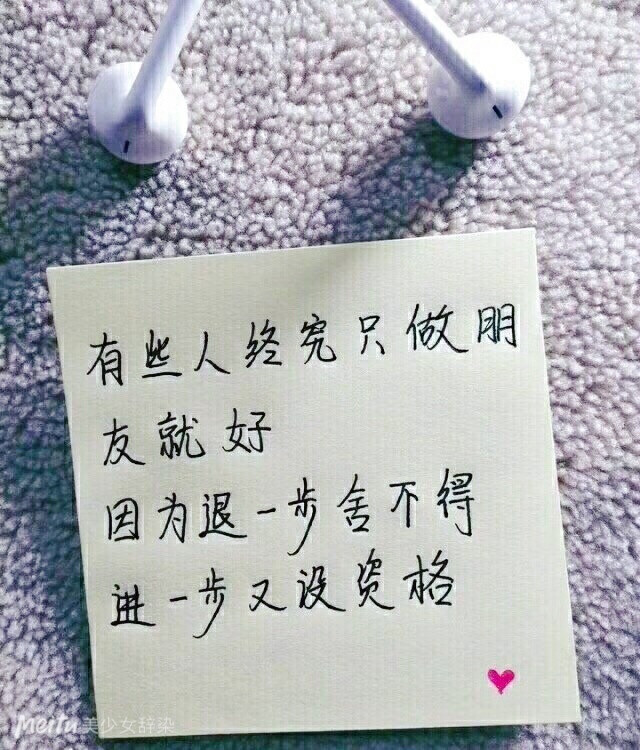 有些人终究只做朋
友就好
因为退一步舍不得
进一步又没资格
Meitu 美少女辞染